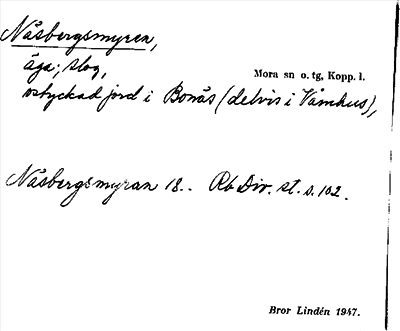 Näsbergsmyren,
äga; slog,
Mora sn o. tg, Kopp. l.
ostyckad jord i Bonäs (delvis i Våmhus),
Näsbergsmyran 18.. Rb Div. st. s. 102.
Bror Lindén 1947.